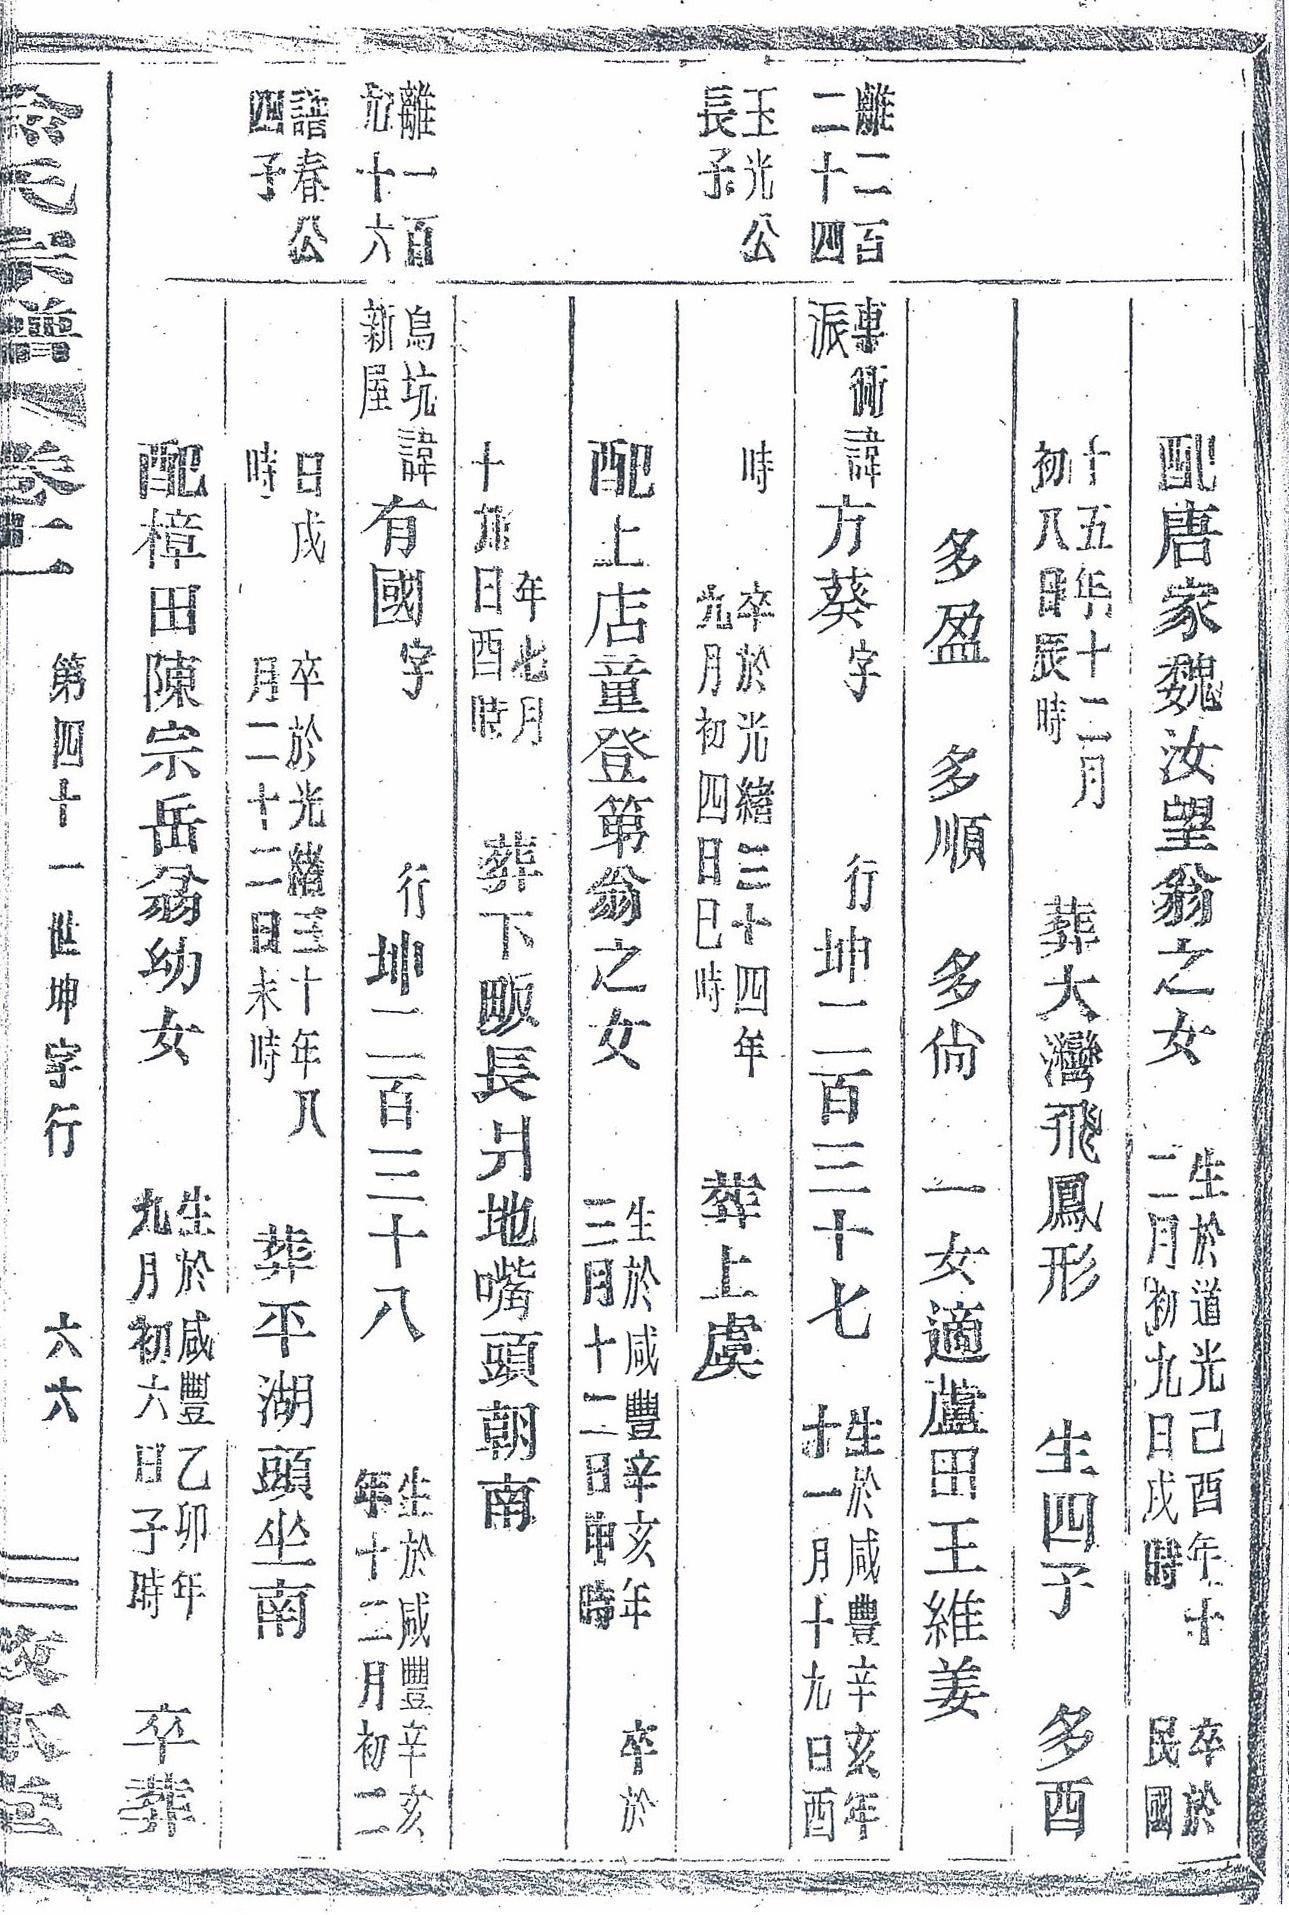 配唐家魏汝望翁之女 生於道光己酉年十二月初九日戌時 卒於民國
十五年十二月初八日辰時 葬大灣飛鳳形 生四子 多酉
多盈 多順 多尙 一女適蘆田王維姜
離二百二十四 專衕派 諱方葵字 行坤一二百三十七 生於咸豐辛亥年十一月十九日酉
玉光公長子 時 卒於光緖三十四年九月初四日巳時 葬上虞
配上店童登第翁之女 生於咸豐辛亥年三月十二日申時 卒於
年七月十九日酉時 葬下畈長爿地嘴頭朝南
離一百九十六 烏坑新屋 諱有國字 行坤一二百三十八 生於咸豐辛亥年十二月初二
譜春公四子 日戌時 卒於光緖三十年八月二十二日未時 葬平湖頭坐南
配樟田陳宗岳翁幼女 生於咸豐乙卯年九月初六日子時 卒葬
氏宗譜 卷二 第四十一世坤字行 六六